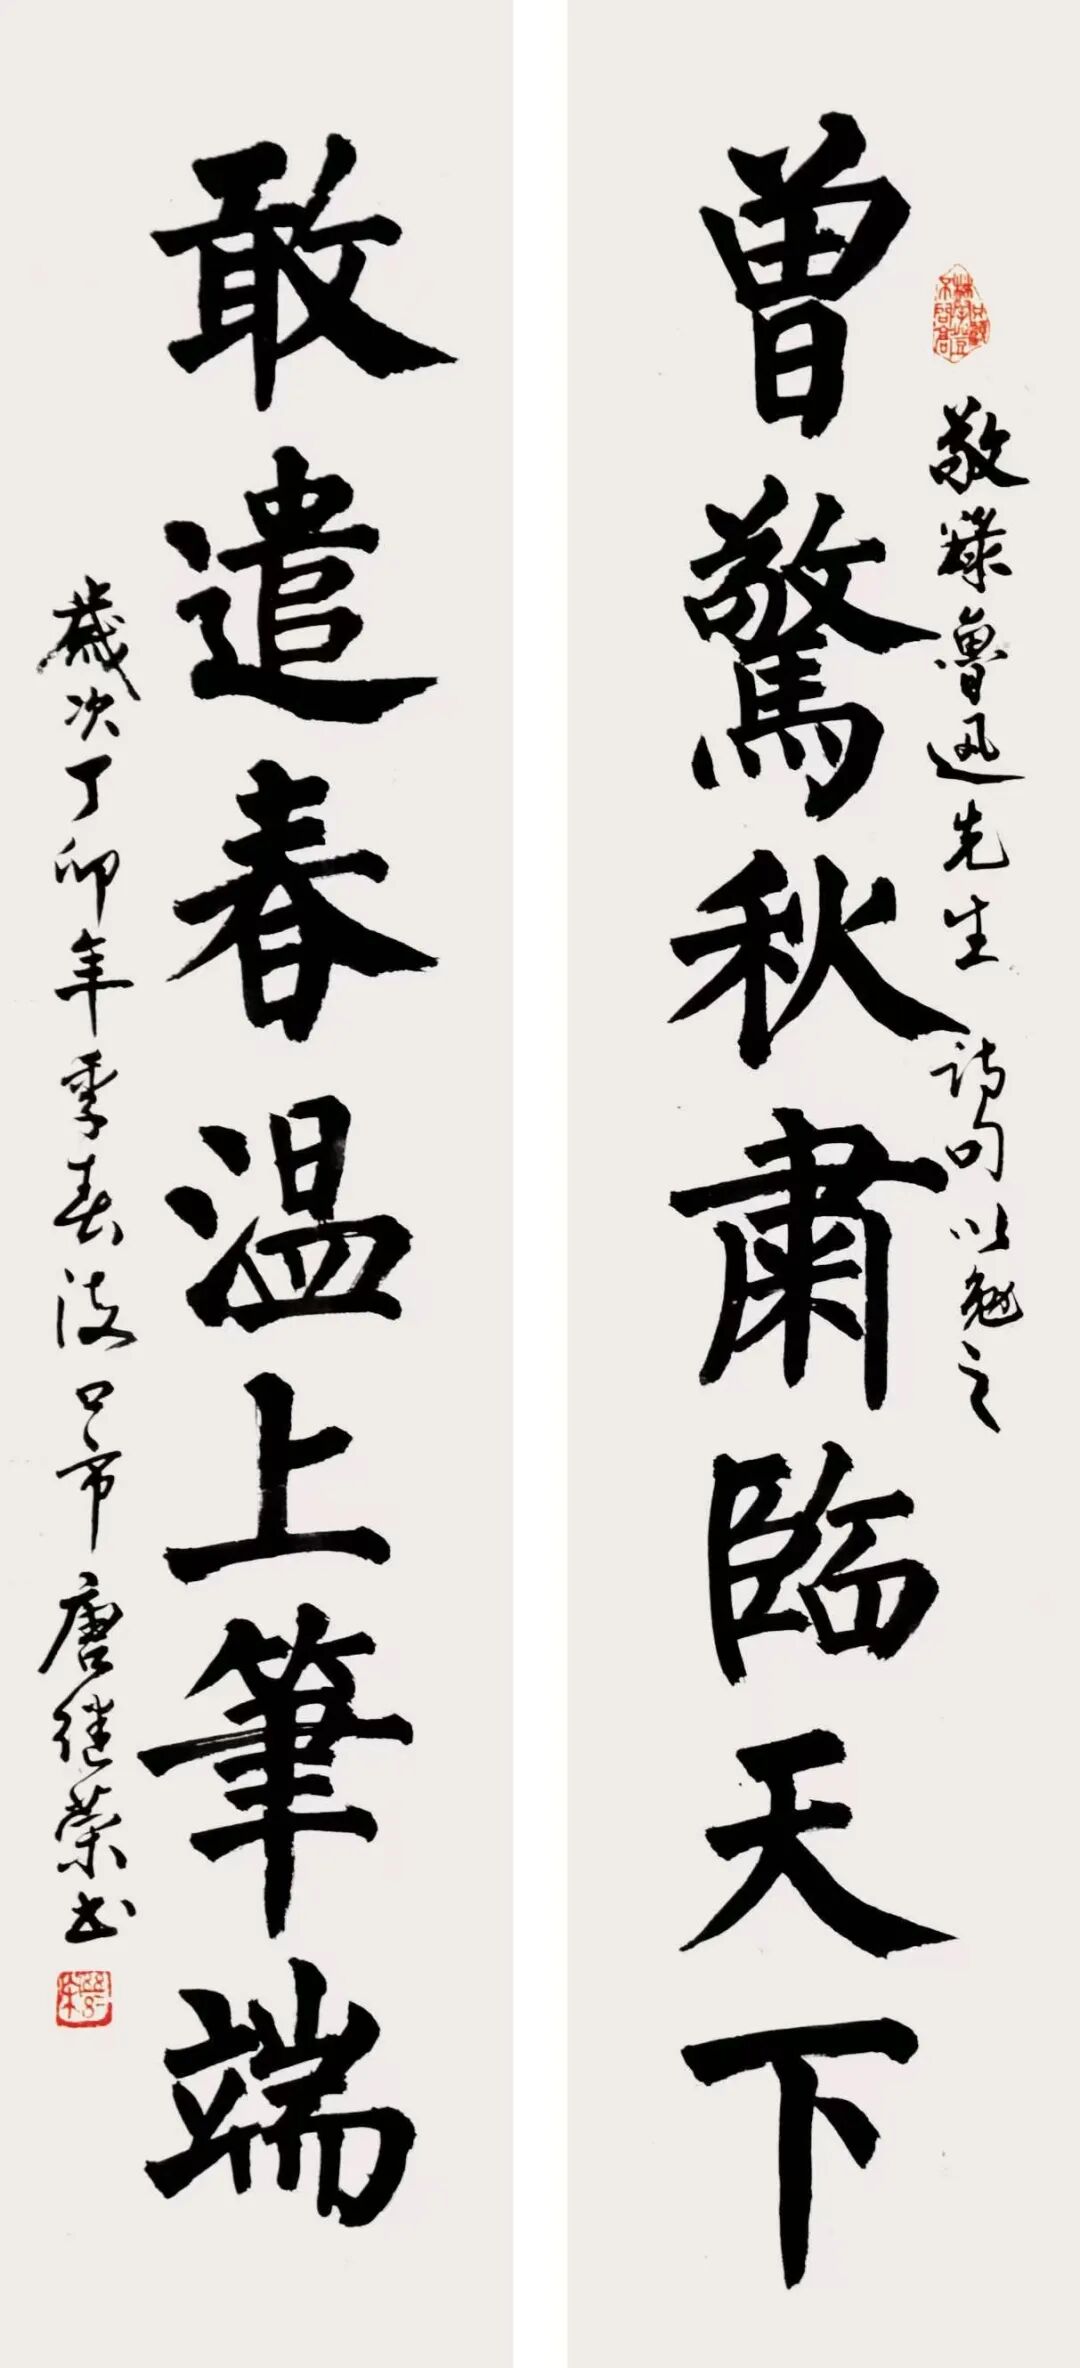 敬録魯迅先生诗句以勉之
曾驚秋肅臨天下
敢遣春温上筆端
歲次丁卯年季春海口市唐继荣书